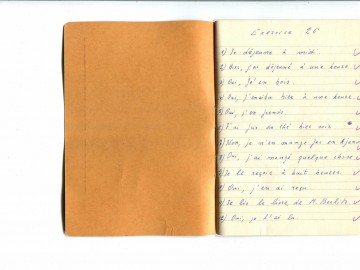 Exercice 26
1) Je déjeune à midi.
2) Hier, j'ai déjeuné à une heure.
3) Oui, j'en bois
4) Oui, hier à une heure.
5) Oui, j'en prends.
6) J'ai du thé hier
7) Non, je n'en mange pas en
8) Oui, j'ai mangé quelque chose
9) Je le reçois à huit heures.
10) Oui, j'en ai reçu.
11) Je lis le livre de M. Berlitz.
12) Oui, je l'ai lu.